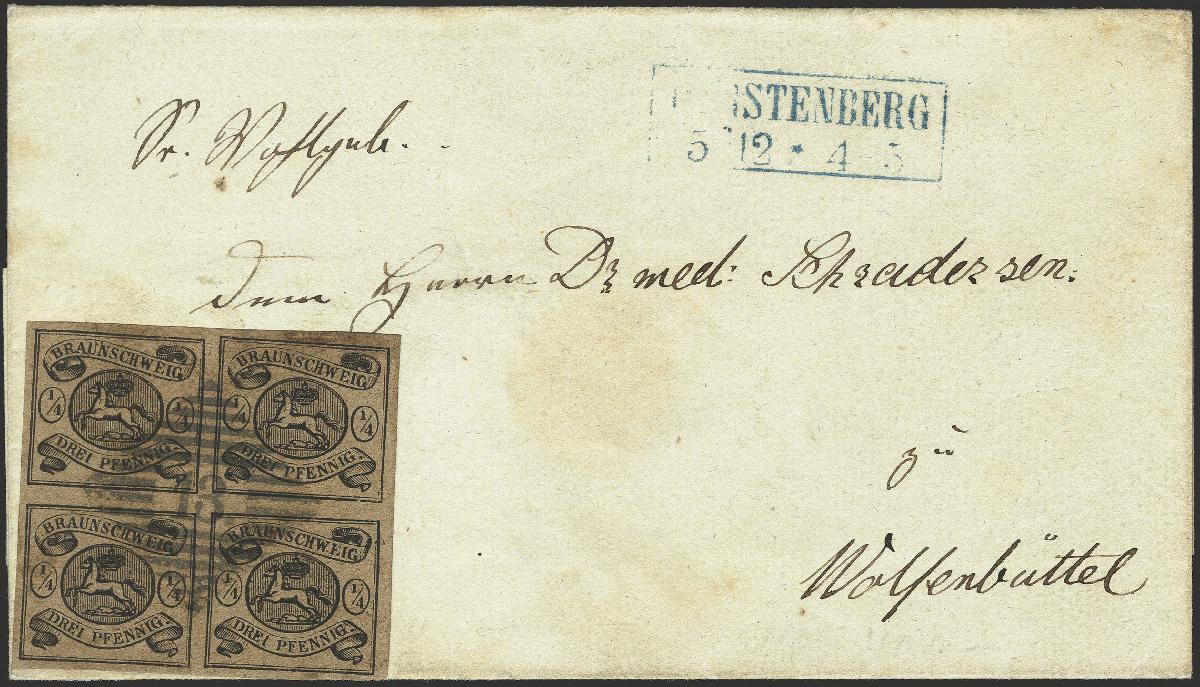 STENBERG
5 12 * 4-5
Sr. Wohlgeb.
dem Herrn Dr med: Schraders sen.
zu
Wolfenbüttel
BRAUNSCHWEIG
1/4 1/4
DREI PFENNIG
BRAUNSCHWEIG
1/4 1/4
DREI PFENNIG
BRAUNSCHWEIG
1/4 1/4
DREI PFENNIG
BRAUNSCHWEIG
1/4 1/4
DREI PFENNIG